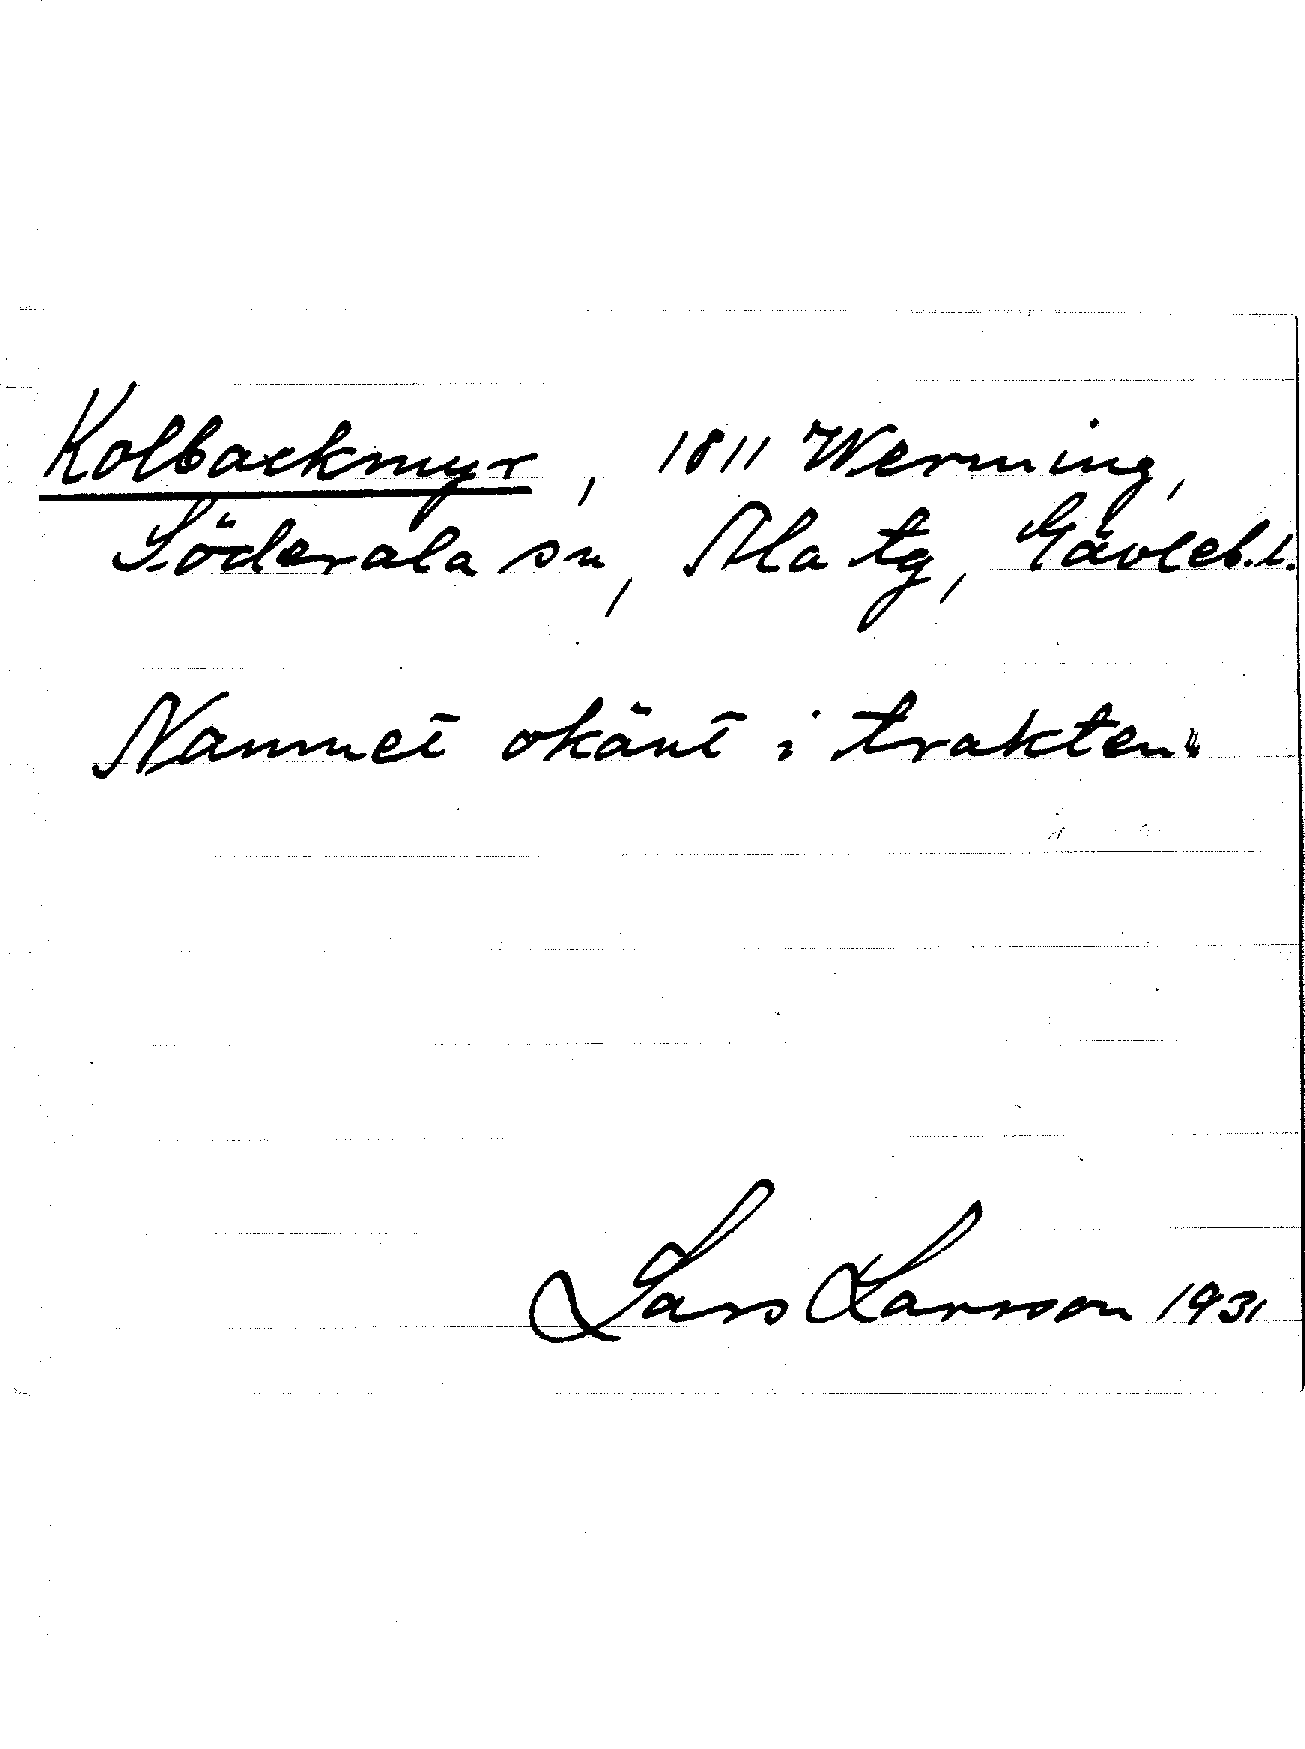 Kolbackmyr, 1811 Werming,
Söderala sn, Ala tg, Gävleb.l.
Namnet okänt i trakten.
Lars Larsson 1931